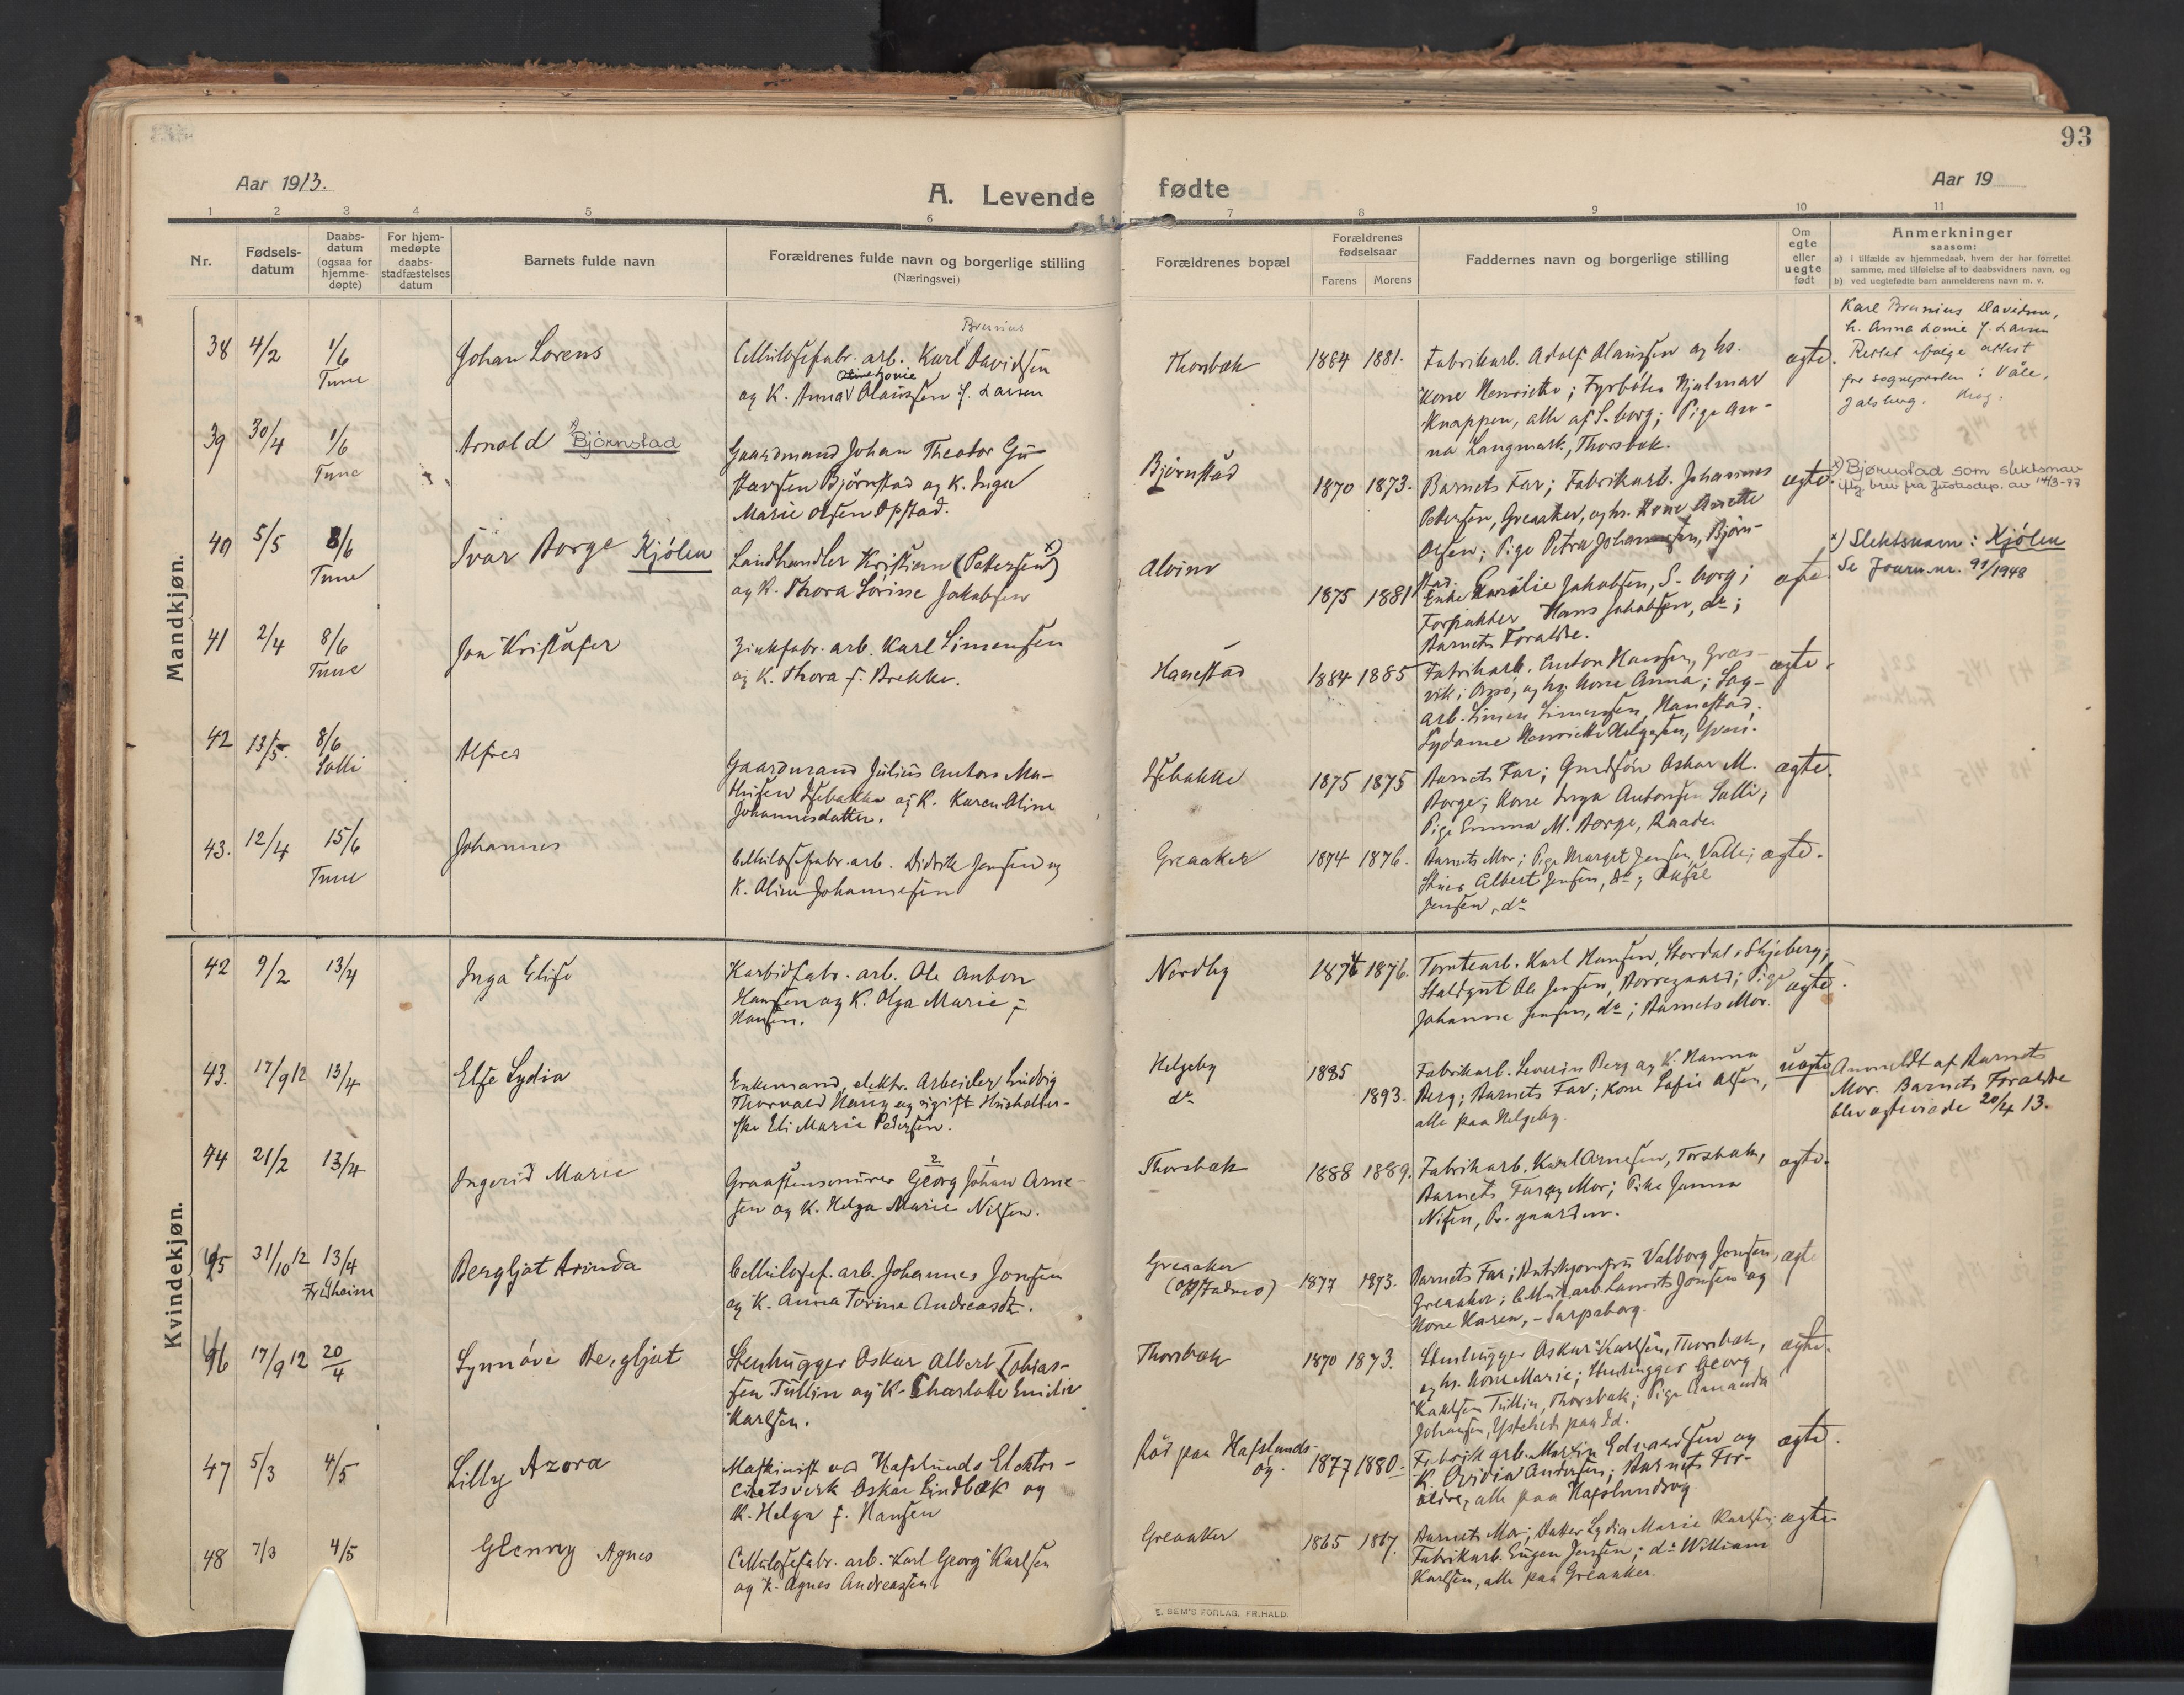 93
Aar 1913.
A. Levende fødte
Aar 19
1 2 3 4 5 6 7 8 9 10 11
Nr.
Fødsels-
datum
Daabs-
datum
(ogsaa for
hjemme-
døpte)
For hjem-
medøpte
daabs-
stadfæstelses
datum
Barnets fulde navn
Forældrenes fulde navn og borgerlige stilling
(Næringsvei)
Forældrenes bopæl
Forældrenes
fødselsaar
Farens Morens
Faddernes navn og borgerlige stilling
Om
egte
eller
uegte
født
Anmerkninger
saasom:
a) i tilfælde av hjemmedaab, hvem der har forrettet
samme, med tilføielse af to daabsvidners navn, og
b) ved uegtefødte barn anmelderens navn m. v.
Mandkjøn.
38 4/2 1/6
Tune
Johan Lorens
Brunius
Cellulosefabr. arb. Karl Davidsen
Lovie
og K. Anna Olaussen f. Larsen
Thorsbæk
1884 1881.
Fabrikarb. Adolf Olaussen og hs.
Kone Henriette; Fyrbøter Hjalmar
Knappen, alle af S.borg; Pige An-
na Langmark, Thorsbæk.
ægte.
Karl Brunius Davidsen,
h. Anna Lovie f. Larsen
Rettet ifølge attest
fra sognepresten i Våle,
Jalsberg.
39 30/4 1/6
Tune
Arnold x) Bjørnstad
Gaardmand Johan Theodor Gu-
stavsen Bjørnstad og K. Inga
Marie Olsen Opstad.
Bjørnstad
1870 1873.
Barnets Far; Fabrikarb. Johannes
Petersen, Greaaker, og hs. Kone Anette
Olsen; Pige Petra Johannesen, Bjørn-
stad.
ægte.
x) Bjørnstad som slektsnavn
iflg. brev fra Justisdep. av 14/3-97
40 5/5 8/6
Tune
Ivar Borge Kjølen
Landhandler Kristian (Pettersen) x)
og K. Thora Lorine Jakobsen
Alvim
1875 1881
Enke Karolie Jakobsen, S-borg;
Forpakter Hans Jakobsen, do;
Barnets Forældre.
ægte.
x) Slektsnavn: Kjølen
Se Journ.nr. 91/1948
41 2/4 8/6
Tune
Jon Kristofer
Zinkfabr. arb. Karl Simensen
og K. Thora f. Brekke.
Hanestad
1884 1885
Fabrikarb. Anton Hansen, Græs-
vik i Onsø, og hs. Kone Anna; Sag-
arb. Simen Simensen, Hanestad,
Sydame Henriette Helgesen, Yven.
ægte.
42 13/5. 8/6
Solli
Alfred
Gaardmand Julius Anton Ma-
thisen Isebakke og K. Karen Oline
Johannesdatter.
Isebakke
1875 1875
Barnets Far; Gaardssøn Oskar M.
Borge; Kone Inga Antonsen Solli,
Pige Emma M. Borge, Raade.
ægte.
43. 12/4 15/6
Tune
Johannes
Cellulosefabr. arb. Didrik Jensen og
K. Oline Johannesen
Greaaker
1874 1876.
Barnets Mor; Pige Margit Jensen, Valle;
Albert Jensen, do;
Jensen, do
ægte.
Kvindekjøn.
42 9/2 13/4
Inga Elise
Karbidfabr. arb. Ole Anton
Hansen og K. Olga Marie f.
Hansen.
Nordby
1874 1876.
Tomtearb. Karl Hansen, Stordal i Skjeberg;
Staldgut Ole Jensen, Borregaard; Pige
Johanne Jensen, do; Barnets Mor.
ægte.
43. 17/9 12 13/4
Else Lydia
Enkemand, elektr. Arbeider Ludvig
Thorvald Haug og ugift Husholder-
ske Eli Marie Pedersen.
Helgeby
do
1885
1893.
Fabrikarb. Severin Berg og K. Hanna
Berg; Barnets Far; Kone Sofie Olsen,
alle paa Helgeby.
uægte
Anmeldt af Barnets
Mor. Barnets Forældre
blev ægteviede 20/4 13.
44 21/2 13/4
Ingerid Marie
2 1
Graastensmurer Georg Johan Arne-
sen og K. Helga Marie Nilsen.
Thorsbæk
1888 1889.
Fabrikarb. Karl Arnesen, Torsbæk,
Barnets Far og Mor; Pike Janna
Nilsen, Pr.gaarden.
ægte.
45 31/10 12 13/4
Fredheim
Bergljot Arinda
Cellulosef. arb. Johannes Jonsen
og K. Anna Torine Andreasdt.
Greaaker
(Opstadmo)
1877 1873.
Barnets Far; Butikjomfru Valborg Jonsen,
Greaaker; Cellul.arb. Laurits Jonsen og
Kone Karen, - Sarpsborg.
ægte
46 17/9 12 20/4
Synnøve Bergljot
Stenhugger Oskar Albert Tobias-
sen Tullin og K. Charlotte Emilie
Karlsen.
Thorsbæk
1870 1873.
Stenhugger Oskar Karlsen, Thorsbæk,
og hs. Kone Marie; Stenhugger Georg
Karlsen Tullin, Thorsbæk; Pige Amanda
Johansen, Ystehed paa Id.
ægte.
47 5/3 4/5
Lilly Azora
Maskinist ved Hafslunds Elektri-
citetsverk Oskar Lindbæk og
K. Helga f. Hansen
Rød paa Hafslunds-
øy.
1877 1880.
Fabrik arb. Martin Edvardsen og
K. Ovidia Andersen; Barnets For-
ældre, alle paa Hafslundsøy.
ægte.
48 7/3 4/5
Glenny Agnes
Cellulosefabr. arb. Karl Georg Karlsen
og K. Agnes Andreassen
Greaaker
1865 1867.
Barnets Mor; Datter Lydia Marie Karlsen;
Fabrikarb. Eugen Jensen; do William
Karlsen, alle paa Greaaker.
ægte
E. SEM'S FORLAG, FR.HALD.